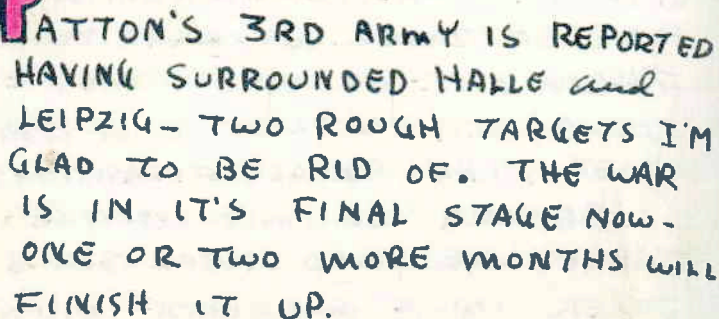 PATTON'S 3RD ARMY IS REPORTED
HAVING SURROUNDED HALLE and
LEIPZIG - TWO ROUGH TARGETS I'M
GLAD TO BE RID OF. THE WAR
IS IN IT'S FINAL STAGE NOW -
ONE OR TWO MORE MONTHS WILL
FINISH IT UP.